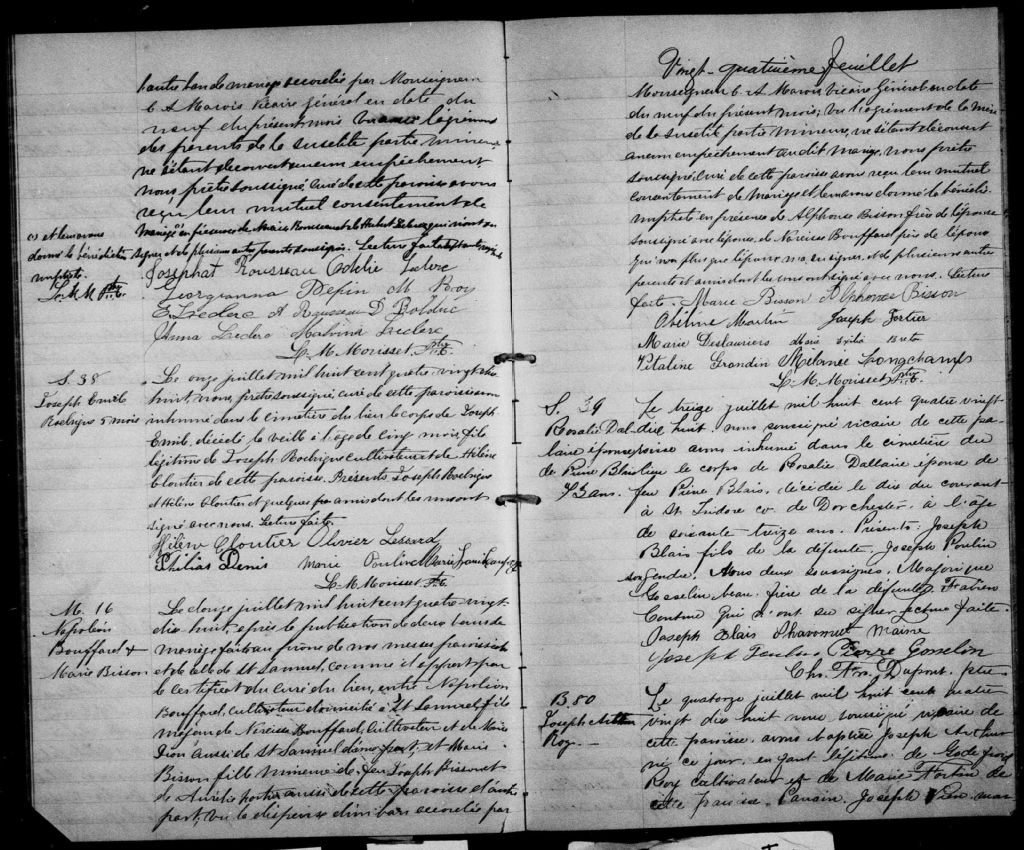 l'autre ban de mariage accordée par Monseigneur
C. A Marois Vicaire général en date du
neuf du présent mois vu aussi l'agrément
des parents de la susdite partie mineure
ne s'étant découvert aucun empêchement
nous prêtre soussigné curé de cette paroisse avons
reçu leur mutuel consentement de
mariage en présence de Rousseau et de
signer et de plusieurs autres parents soussignés. Lecture faite
(1) et leur avons
donné la bénédiction
nuptiale.
L. M. M. Ptre C.
Josephat Rousseau Odélie Leclerc
Georgianna Pepin M Roy
E. Leclerc A Rousseau D Bolduc
Anna Leclerc Malvina Leclerc
L. M. Morisset Ptre C.
S. 38
Joseph Emile
Rodrigue 5 mois
Le onze juillet mil huit cent quatre-vingt-dix
huit, nous, prêtre soussigné, curé de cette paroisse avons
inhumé dans le cimetière du lieu le corps de Joseph
Emile, décédé la veille à l'âge de cinq mois, fils
légitime de Joseph Rodrigue cultivateur et de Hélène
Cloutier de cette paroisse. Présents Joseph Rodrigue
et Hélène Cloutier et quelques amis dont les uns ont
signé avec nous. Lecture faite.
Hélène Cloutier Olivier Lessard
Philias Denis Marie Poulin Marie
L. M. Morisset Ptre C.
M. 16
Napoléon
Bouffard &
Marie Bisson
Le douze juillet mil huit cent quatre-vingt-
dix huit, après la publication de deux bans de
mariage faite au prône de nos messes paroissiales
et de celle de St Samuel, comme il appert par
le certificat du curé du lieu, entre Napoléon
Bouffard, cultivateur domicilié à St Samuel, fils
majeur de Narcisse Bouffard, cultivateur et de Marie
Dion aussi de St Samuel d'une part, et Marie
Bisson fille mineure de feu Joseph Bisson et
de Aurélie Fortier aussi de cette paroisse d'autre
part, vu la dispense d'un ban accordée par
Vingt-quatrième feuillet
Monseigneur C. A. Marois Vicaire Général en date
du neuf du présent mois; vu l'agrément de la mère
de la susdite partie mineure, ne s'étant découvert
aucun empêchement au dit mariage, nous prêtre
soussigné, curé de cette paroisse avons reçu leur mutuel
consentement de mariage et leur avons donné la bénédiction
nuptiale en présence de Alphonse Bisson frère de l'épouse
soussigné avec l'épouse, de Narcisse Bouffard père de l'époux
qui non plus que l'époux n'a su signer, et de plusieurs autres
parents et amis dont les uns ont signé avec nous. Lecture
faite. Marie Bisson Alphonse Bisson
Obéline Martin Joseph Fortier
Marie Deslauriers Marie Exilia Breto
Vitaline Grondin Mélanie Longchamps
L. M. Morisset Ptre C.
S. 39
Rosalie Dal-
laire épouse
de Pierre Blais
73 ans.
Le treize juillet mil huit cent quatre vingt
dix huit nous soussigné vicaire de cette pa-
roisse avons inhumé dans le cimetière du
lieu le corps de Rosalie Dallaire épouse de
feu Pierre Blais, décédée le dix du courant
à St. Isidore co. de Dorchester, à l'âge
de soixante treize ans. Présents: Joseph
Blais fils de la défunte, Joseph Poulin
son gendre. Tous deux soussignés, Majorique
Gosselin beau-frère de la défunte, Fabien
Couture qui n'ont su signer, lecture faite.
Joseph Blais Maire
Joseph Poulin Pierre Gosselin
Chs. Frs. Dupont, ptre
B. 50
Joseph Arthur
Roy.
Le quatorze juillet mil huit cent quatre
vingt dix huit nous soussigné vicaire de
cette paroisse, avons baptisé Joseph Arthur
né ce jour, enfant légitime de Godefroid
Roy cultivateur et de Marie Fortin de
cette paroisse. Parrain, Joseph